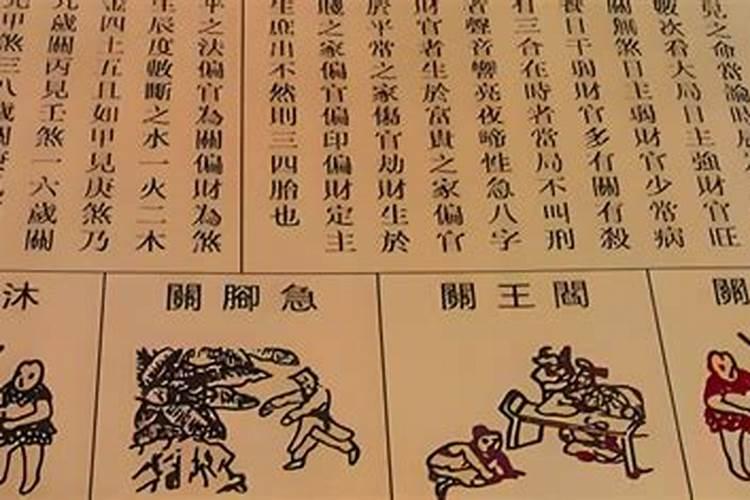 見之命當論時
數次看大局日主強財官旺
關無煞日主弱財官少常病
日干弱財官多有關有殺
三合在時者當局不叫刑
者聲音響亮夜啼性急八字
財官者生於富貴之家偏官
於平常之家傷官劫財生於
賤之家偏官偏印偏財定主
生庶出不然則三四胎也
平之法偏官為關偏財為煞
生辰度數斷之水一火二木
四土五且如甲見庚煞乃
九歲關丙見壬煞一六歲關
甲煞三八歲關
關
閻王關
急腳關
沐